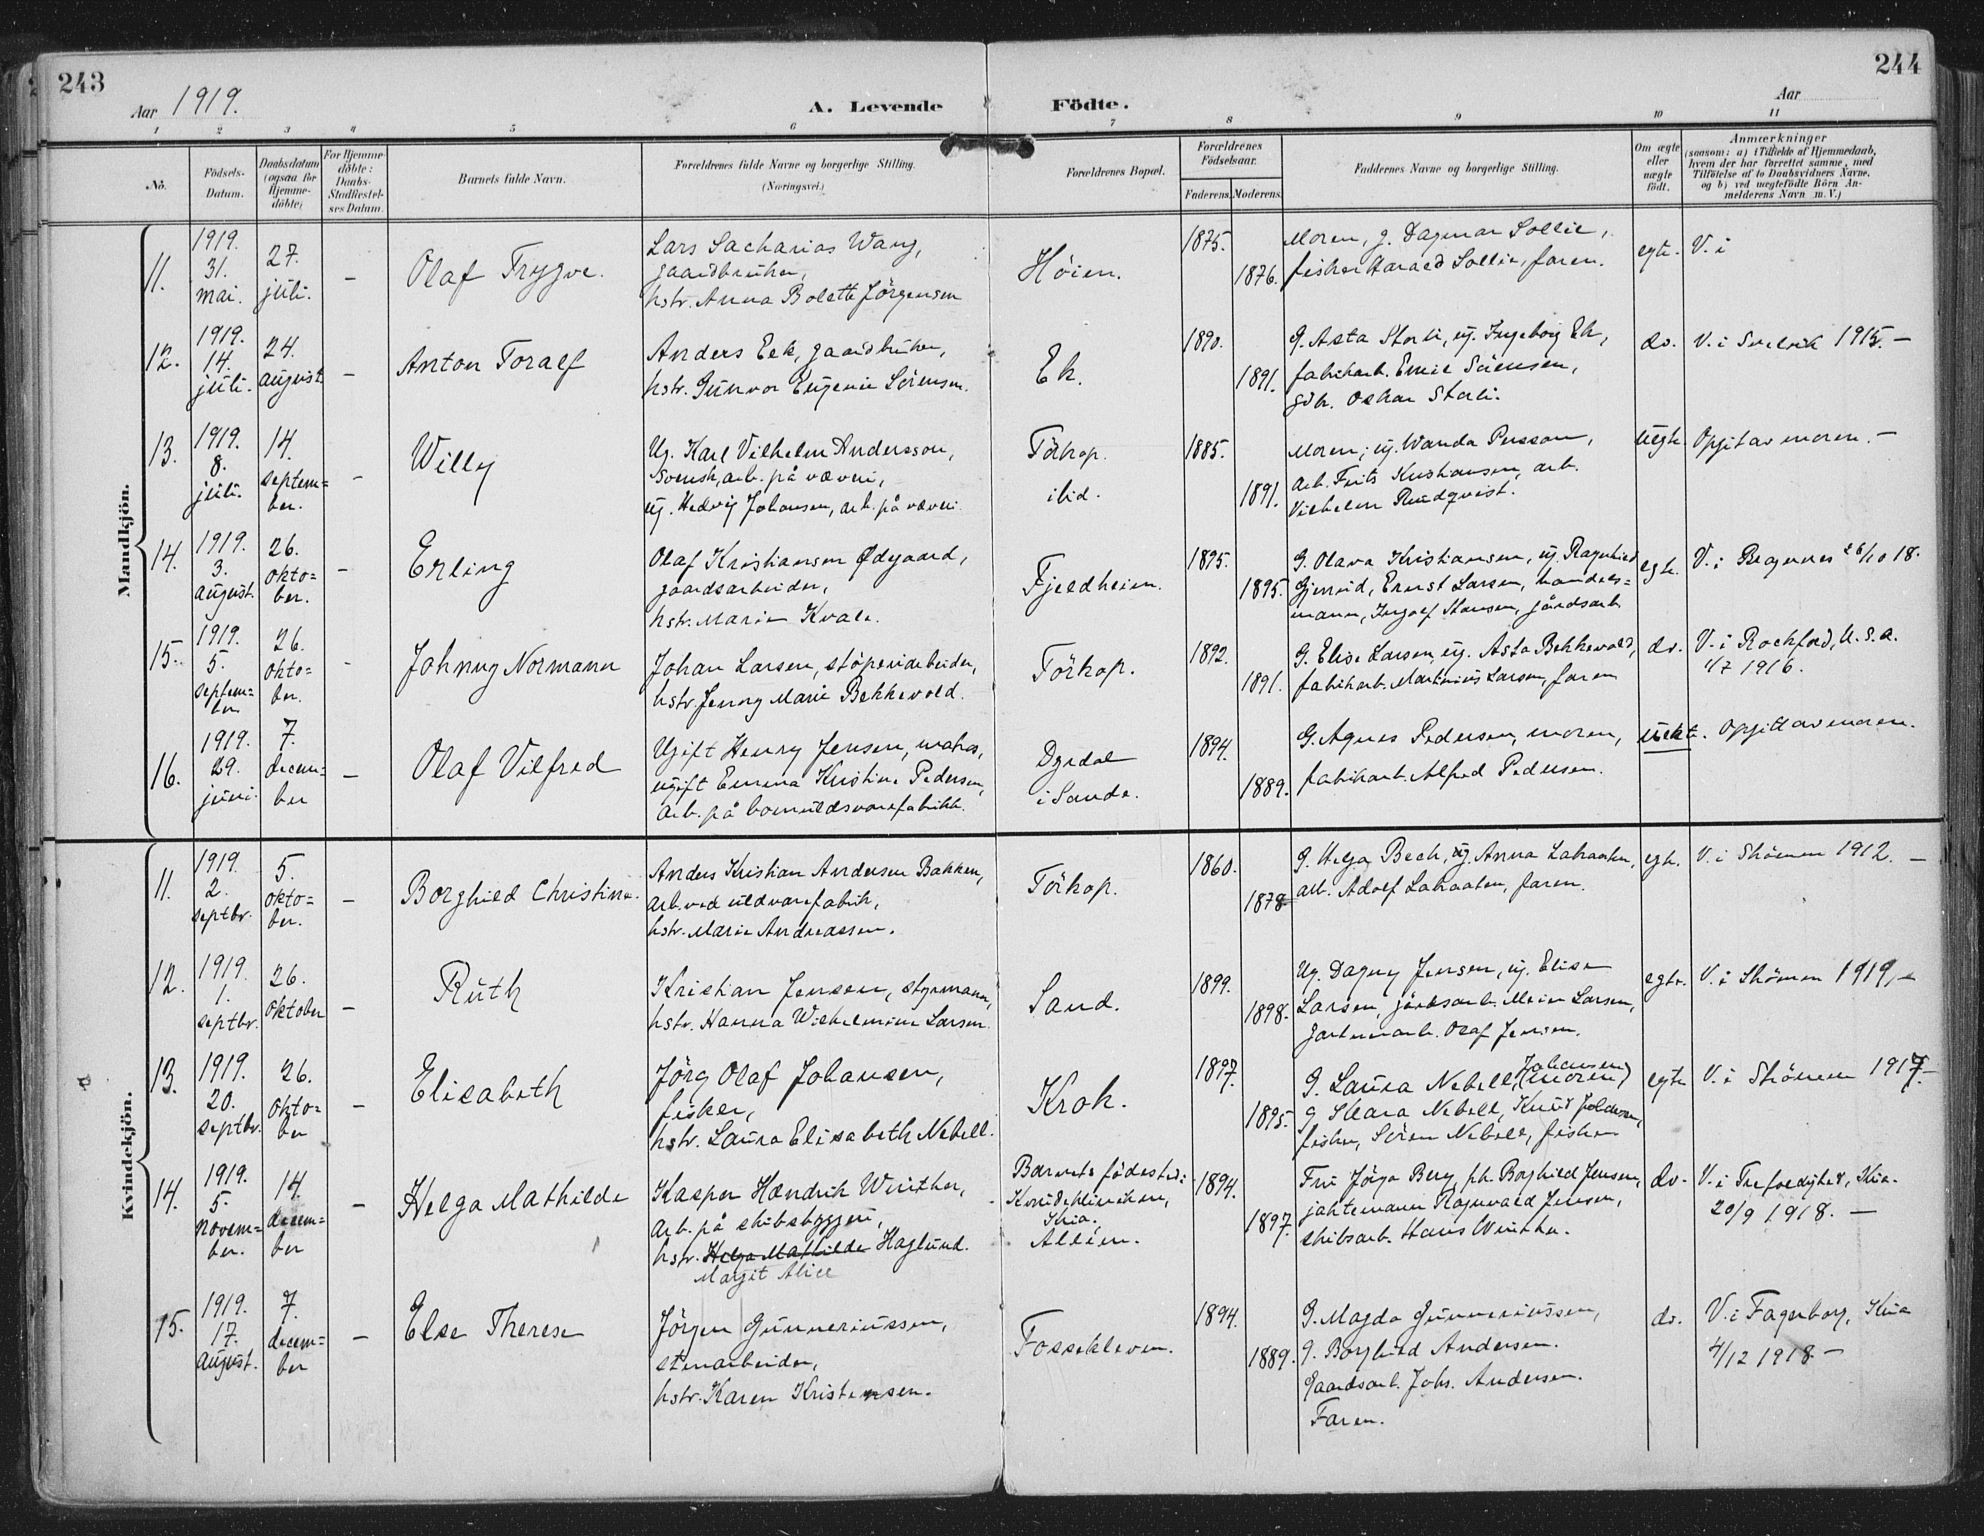 243
244
Aar 1919.
A. Levende Födte.
Aar
1 2 3 4 5 6 7 8 9 10 11
No.
Födsels-
Datum.
Daabsdatum
(ogsaa for
Hjemme-
döbte)
For Hjemme-
döbte:
Daabs-
Stadfæstel-
ses Datum.
Barnets fulde Navn.
Forældrenes fulde Navne og borgerlige Stilling.
(Næringsvei.)
Forældrenes Bopæl.
Forældrenes
Födselsaar.
Faderens. Moderens.
Faddernes Navne og borgerlige Stilling.
Om ægte
eller
uægte
födt.
Anmærkninger
(saasom: a) i Tilfælde af Hjemmedaab,
hvem der har forrettet samme, med
Tilföielse af to Daabsvidners Navne,
og b) ved uægtefödte Börn An-
melderens Navn m. V.)
Mandkjön.
11.
1919.
31.
mai.
27.
juli.
-
Olaf Trygve.
Lars Sacharias Wang,
gaardbruker,
hstr. Anna Bolette Jörgensen
Höien.
1875.
1876.
Moren, g. Dagmar Sollie,
fisker Harald Sollie, faren.
egte.
V. i
12.
1919.
14.
juli.
24.
august
-
Anton Toralf
Anders Eek, gaardbruker,
hstr. Gunvor Eugenie Sörensen.
Ek.
1890.
1891.
G. Asta Storli, ug. Ingeborg Ek,
fabrikarb. Emil Sörensen,
gdbr. Oskar Storli.
do.
V. i Svelvik 1915. -
13.
1919.
8.
juli.
14.
septem=
ber.
-
Willy
Ug. Karl Vilhelm Andersson,
svensk, arb. på væveri,
ug. Hedvig Johansen, arb. på væveri.
Törkop.
ibid.
1885.
1891.
Moren, ug. Wanda Persson,
arb. Frits Kristiansen, arb.
Vilhelm Rundqvist.
uegte.
Opgit av moren. -
14.
1919.
3.
august.
26.
okto=
ber.
-
Erling
Olaf Kristiansen Ødegaard,
gaardsarbeider,
hstr. Marie Kvale.
Fjeldheim.
1895.
1895.
G. Olava Kristiansen, ug. Ragnhild
Gjerud, Ernst Larsen, handels=
mann, Ingolf Hansen, järdsarb.
egte.
V. i Bragernes 26/10 18.
15.
1919.
5.
septem=
ber
26.
okto=
ber.
-
Johnny Normann
Johan Larsen, stöperiarbeider,
hstr. Jenny Marie Bekkevold.
Törkop.
1892.
1891.
G. Elise Larsen, ug. Asta Bekkevold,
fabrikarb. Martinius Larsen, faren
do.
V. i Rockford, U.S.A.
1/7 1916.
16.
1919.
29.
juni.
7.
decem-
ber
-
Olaf Vilfred
Ugift Henry Jensen, matros,
ugift Emma Kristine Pedersen,
arb. på bomuldsvarefabrikk.
Dyrdal
i Sande.
1894.
1889.
G. Agnes Pedersen, moren,
fabrikarb. Alfred Pedersen.
uekte.
Opgitt av moren.
Kvindekjön.
11.
1919.
2.
septbr.
5.
okto=
ber.
-
Borghild Christine.
Anders Kristian Andersen Bakken,
arb. ved uldvarefabrik,
hstr. Marie Andreassen.
Törkop.
1860.
1878
G. Helga Bech, ug. Anna Lahaaten,
arb. Adolf Lahaaten, faren.
egte.
V. i Skömen 1912. -
12.
1919.
1.
septbr.
26.
oktober
-
Ruth
Kristian Jensen, styrmann,
hstr. Hanna Wilhelmine Larsen.
Sand.
1899.
1898.
Ug. Dagny Jensen, ug. Elise
Larsen, järdsarb. Meier Larsen,
gartnerarb. Olaf Jensen.
egte.
V. i Skömen 1919, -
13.
1919.
20.
septbr.
26.
okto=
ber
-
Elisabeth
Jörg Olaf Johansen,
fisker,
hstr. Laura Elisabeth Nebell.
Krok.
1897.
1895.
G. Laura Nebell, Johansen (moren)
g. Klara Nebell, Knud
fisker, Sören Nebell, fisker
egte
V. i Skömen 1917. -
14.
1919.
5.
novem=
ber.
14.
decem-
ber
-
Helga Mathilde
Kasper Hendrik Winther,
arb. på skibsbyggeri,
hstr. Helga Mathilde Haglund.
Margit Alice
Barnets födested:
Kvindeklinikken,
Kria.
Alléen.
1894.
1897.
Fru Jörga Berg, pk. Borghild Jensen,
jaktemann Ragnvald Jensen,
skibsarb. Hans Winther.
do.
V. i Trefoldighed, Kria.
20/9 1918. -
15.
1919.
17.
august.
7.
decem=
ber
-
Else Therese
Jörgen Gunneriussen,
stenarbeider,
hstr. Karen Kristensen.
Fossekleven.
1894.
1889.
G. Magda Gunneriussen,
g. Borghild Andersen.
Gaardsarb. Johs. Andersen.
Faren.
do.
V. i Fagerborg, Kria
4/12 1918. -